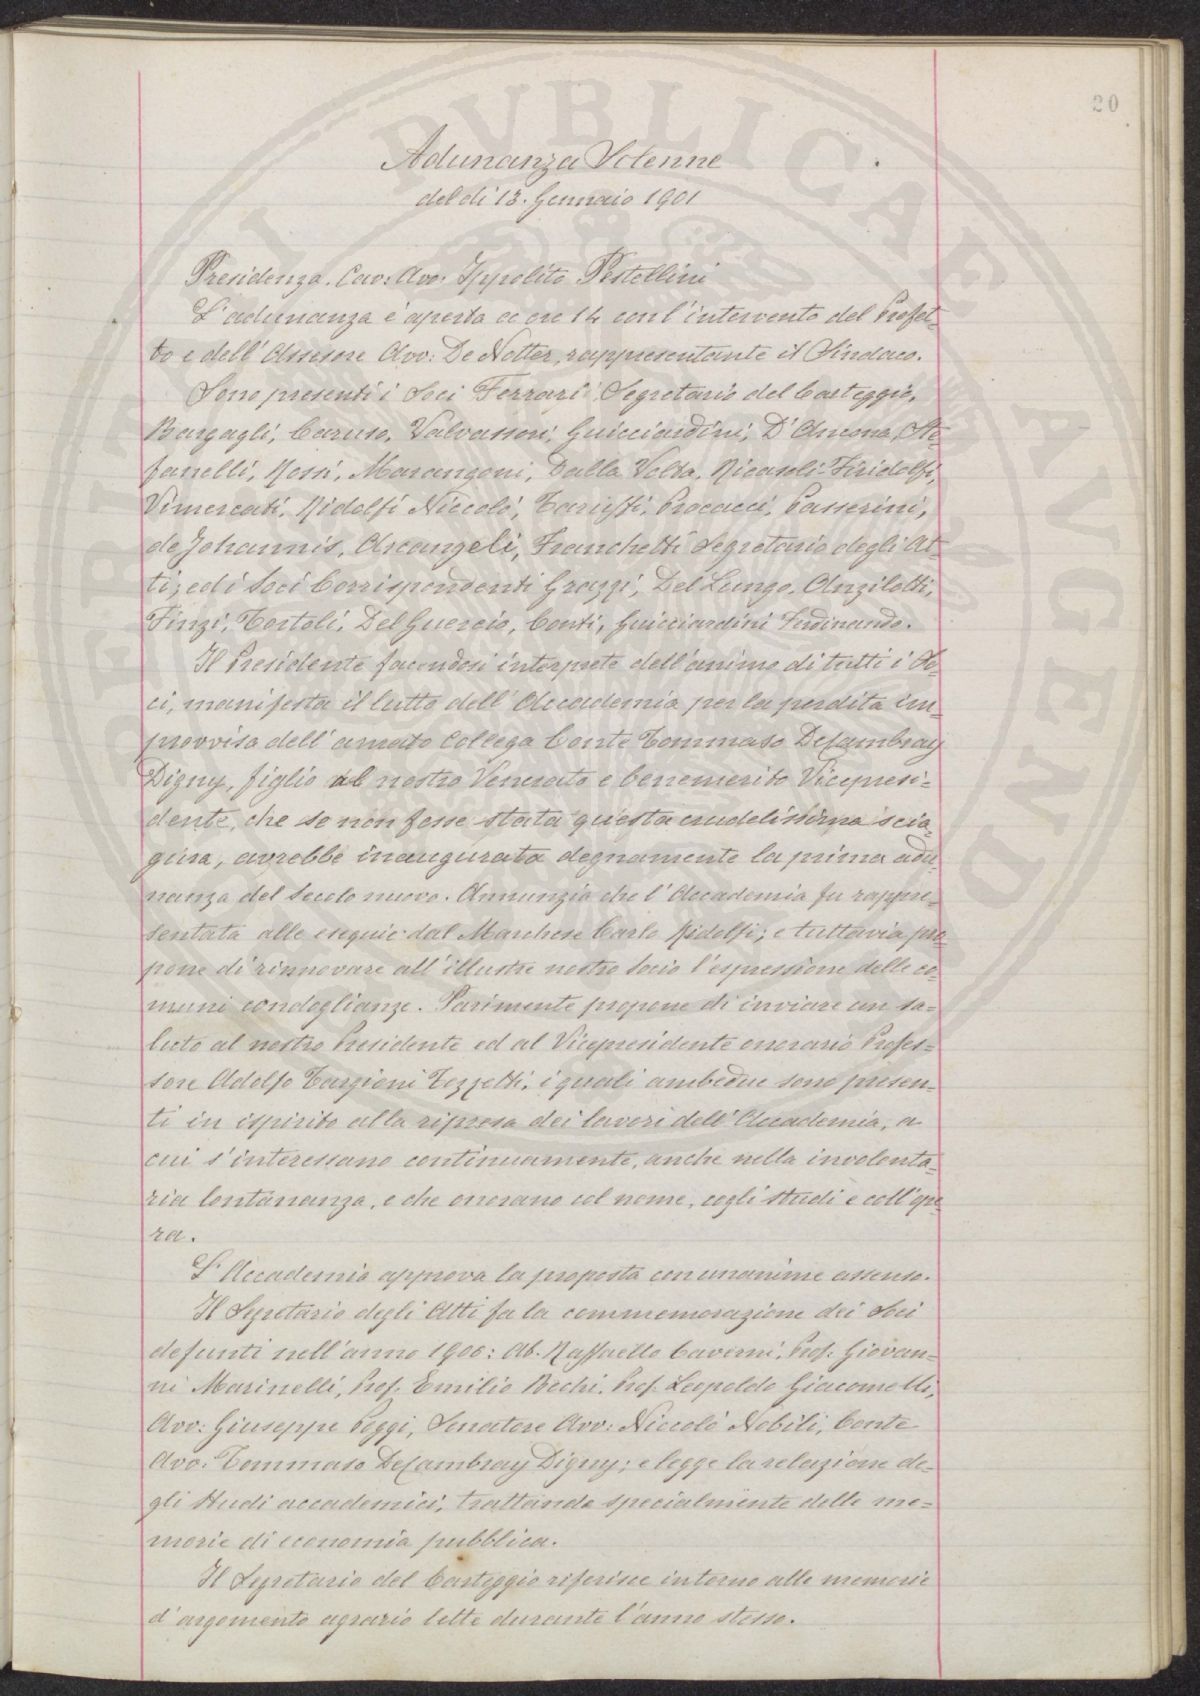 20
Adunanza Solenne
del dì 13. Gennaio 1901
Presidenza. Cav: Avv. Ippolito Pestellini
L'adunanza è aperta a ore 14 con l'intervento del Prefet-
to e dell'Assessore Avv: De Notter, rappresentante il Sindaco.
Sono presenti i Soci Ferrari Segretario del Carteggio,
Bargagli, Caruso, Valvassori, Guicciardini, D'Ancona, Ste-
fanelli, Rossi, Marangoni, Dalla Volta, Ricasoli-Firidolfi,
Vimercati, Ridolfi Niccolò, Caruffi, Procacci, Passerini,
de Johannis, Arcangeli, Franchetti Segretario degli At-
ti; ed i Soci Corrispondenti Grazzi, Del Lungo, Anzilotti,
Finzi, Tortoli, Del Guercio, Conti, Guicciardini Ferdinando.
Il Presidente facendosi interprete dell'animo di tutti i So-
ci, manifesta il lutto dell'Accademia per la perdita im-
provvisa dell'amato Collega Conte Tommaso De Cambray
Digny, figlio al nostro Venerato e benemerito Vicepresi-
dente, che se non fosse stata questa crudelissima scia-
gura, avrebbe inaugurata degnamente la prima adu-
nanza del Secolo nuovo. Annunzia che l'Accademia fu rappre-
sentata alle esequie dal Marchese Carlo Ridolfi; e tuttavia pro-
pone di rinnovare all'illustre nostro Socio l'espressione delle co-
muni condoglianze. Parimente propone di inviare un sa-
luto al nostro Presidente ed al Vicepresidente onorario Profes-
sore Adolfo Targioni Tozzetti, i quali ambedue sono presen-
ti in ispirito alla ripresa dei lavori dell'Accademia, a
cui s'interessano continuamente, anche nella involonta-
ria lontananza, e che onorano col nome, cogli studi e coll'ope-
ra.
L'Accademia approva la proposta con unanime assenso.
Il Segretario degli Atti fa la commemorazione dei Soci
defunti nell'anno 1900: Ab. Raffaello Caverni, Prof. Giovan-
ni Marinelli, Prof. Emilio Bechi, Prof. Leopoldo Giacomelli,
Avv: Giuseppe Poggi, Senatore Avv: Niccolò Nobili, Conte
Avv. Tommaso De Cambray Digny; e legge la relazione de-
gli studi accademici, trattando specialmente delle me-
morie di economia pubblica.
Il Segretario del Carteggio riferisce intorno alle memorie
d'argomento agrario lette durante l'anno stesso.